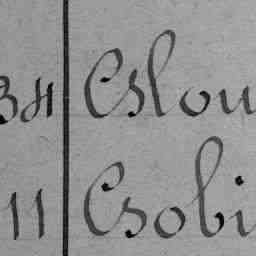 34 Cslou
11 Csobi